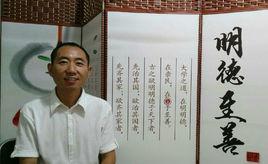 大学之道，在明明德，
在亲民，在止于至善。
古之欲明明德于天下者，
先治其国；欲治其国者，
先齐其家；欲齐其家者，
明德至善